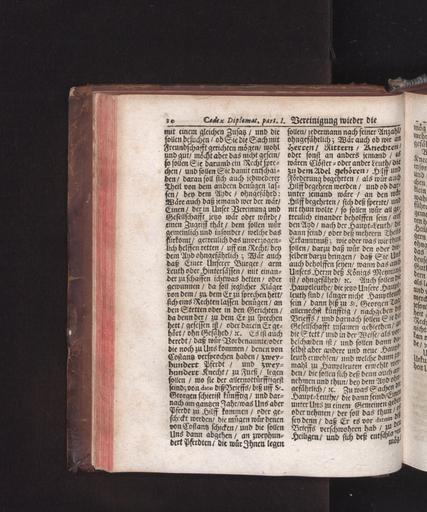 20 Codex Diplomat. part. I. Vereinigung wieder die
mit einem gleichen Zusatz / und die
sollen besuchen / ob Sie die Sach mit
Freundschafft gerichten mögen / wohl
und gut / möcht aber das nicht gesein /
so sollen Sie darumb ein Recht spre-
chen / und sollen Sie damit entschai-
den / daran soll sich auch jedweder
Theil von dem andern benügen las-
sen / bey dem Ayde / ohngefährd:
Wäre auch daß jemand wer der wär /
Einen / der in Unser Vereinung und
Gesellschafft jetzo wär oder würde /
einen Zugriff thät / dem sollen wir
gemeinlich und insonder / welche das
ankomt / getreulich das unverzogen-
lich helffen retten / uff ein Recht / bey
dem Ayd ohngefährlich; Wär auch
daß Einer Unserer Burger / arm
Leuth oder Hintersässen / mit einan-
der zu schaffen / ichtwas hetten / oder
gewunnen / da soll jeglicher Kläger
von dem / zu dem Er zu sprechen hett /
sich eins Rechten lassen benügen / an
den Stetten oder in den Gerichten /
da denn der / zu dem Er zu sprechen
hett / gesessen ist / oder darein Er ge-
hört / ohn Gefährd / &c. Es ist auch
beredt / daß wür Vorbenannte / oder
die noch zu Uns kommen / denen von
Costantz versprochen haben / zwey-
hundert Pferdt / und zwey-
hundert Knecht / zu Fueß / legen
sollen / wo sie der allernotturfftigest
seind / von dato diß Brieffs / biß uff S.
Georgen schierist künfftig / und dar-
nach ein gantzes Jahr / was Uns aber
Pferdt zu Hilff kommen / oder ge-
schickt werden / die mügen wür denen
von Costantz schicken / und die sollen
Uns dann abgehen / an zweyhun-
dert Pferdten / die wür Ihnen legen
sollen / jedermann nach seiner Anzahl /
ohngefährlich; Wär auch ob wir an
Herren / Rittern / Knechten /
oder sonst an anders jemand / es
wären Clöster oder ander Leuth / die
zu dem Adel gehören / Hilff und
Förderung begehrten / als wür auch
Hilff begehren werden / und ob daß
unter jemand wäre / an den wür
Hilff begehrten / sich deß sperrte / und
nit thun wolte / so sollen wür all ge-
treulich einander beholffen sein / auf
den Ayd / nach der Haupt-Leuth / die
dann seind / oder deß mehrern Theils
Erkanntnuß; wie oder was wir thun
sollen / darzu daß wür den oder die-
selben darzu bringen / daß Sie Uns
auch beholffen seyen / wann das auch
Unsers Herrn deß Königs Meynung
ist / ohngefährd / &c. Auch sollen die
Hauptleuthe / die jetzo Unsere Haupt-
leuth sind / länger nicht Hauptleuth
sein / dann biß zu S. Georgen Tag
allernechst künfftig / nach geben diß
Brieffs / und darnach sollen Sie die
Gesellschafft zusamen gebiethen / an
die Stett / und in der Masse / als vor
bescheiden ist / und sollen dann die-
selbst aber andere und neue Haupt-
leuth erwehlen / und welche dann zu-
mahl zu Hauptleuten erwehlt wer-
den / die sollen sich deß denn auch an-
nehmen und thun / bey dem Ayd ohn-
gefährlich / &c. Zu was Sachen die
Haupt-Leuthe / die dann seind / Einen
unter Uns in einem Gemeinen geben
oder nehmen / der soll das thun / es
sey denn / daß Er es vor dato diß
Brieffs verschworen hab / zu den
Heiligen / und sich deß entschlagen
mög /